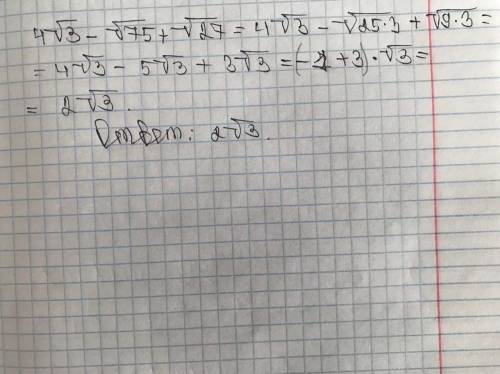 4√3 - √75 + √27 = 4√3 - √25·3 + √9·3 =
= 4√3 - 5√3 + 3√3 = (-1 + 3)·√3 =
= 2√3.
Ответ: 2√3.